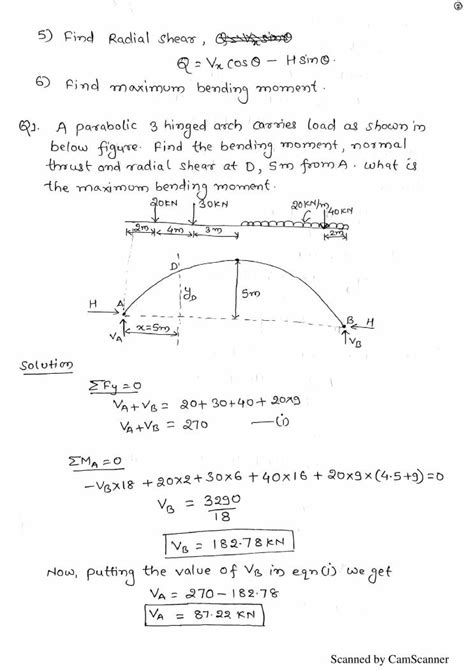 ②
5) Find Radial shear,
Q = Vx cosθ - H sinθ.
6) Find maximum bending moment.
Q1. A parabolic 3 hinged arch carries load as shown in
below figure. Find the bending moment, normal
thrust and radial shear at D, 5m from A. what is
the maximum bending moment.
20KN 30KN 20KN/m 40KN
2m 4m 3m 2m
D'
yD 5m
H A B H
VA x=5m VB
Solution
ΣFy=0
VA+VB = 20+30+40+20×9
VA+VB = 270 —(i)
ΣMA=0
-VB×18 + 20×2+30×6 + 40×16 + 20×9×(4.5+9)=0
VB = 3290
18
VB = 182.78 KN
Now, putting the value of VB in eqn(i) we get
VA = 270 - 182.78
VA = 87.22 KN
Scanned by CamScanner